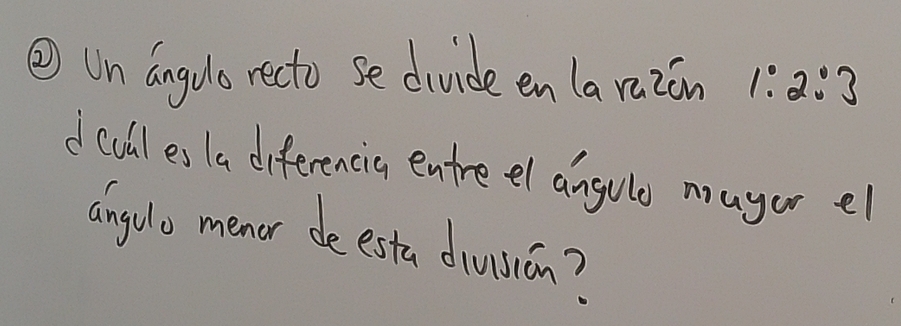 ② Un ángulo recto se divide en la razón 1:2:3
¿cuál es la diferencia entre el ángulo mayor el
ángulo menor de esta división?